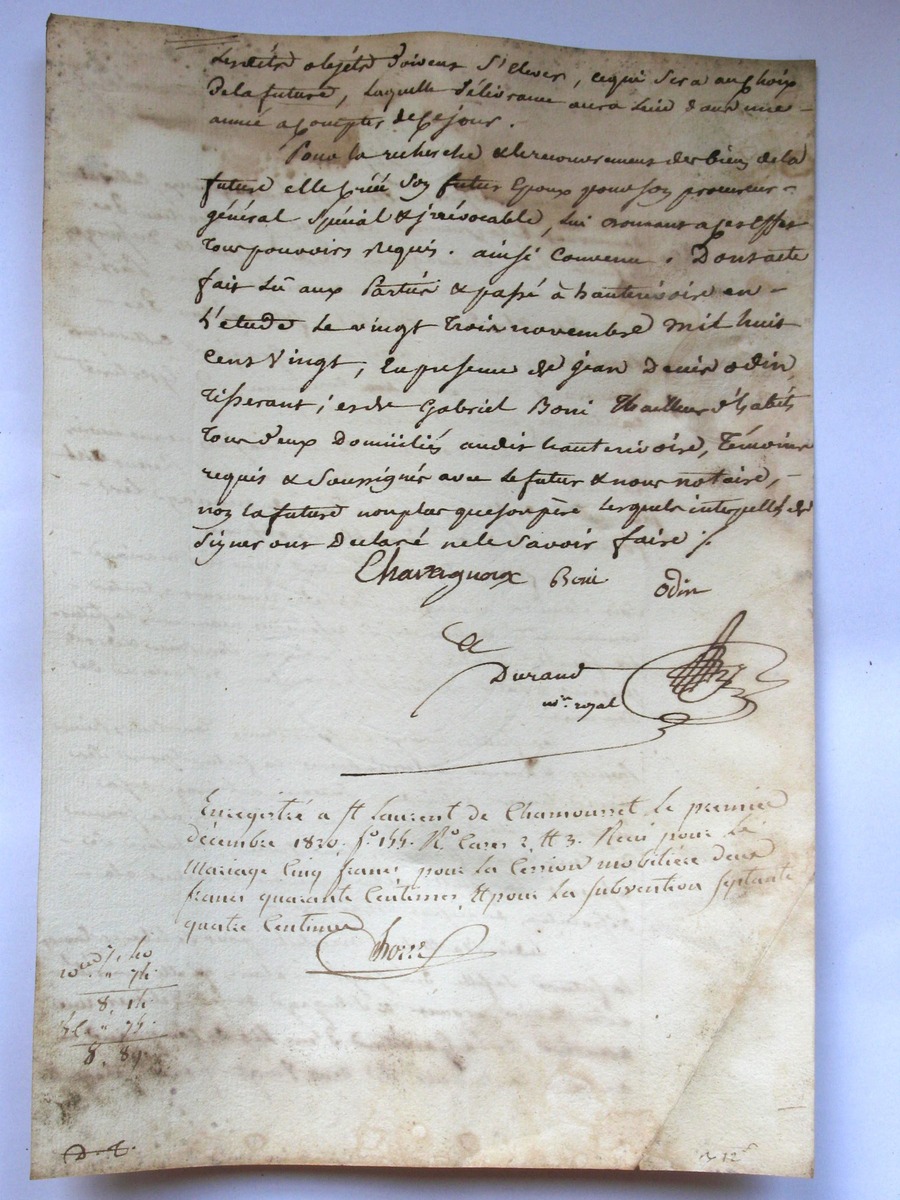 Lesdits objets doivent s'élever, ce qui sera au choix
De la future, laquelle délivrance aura lieu dans une
année à compter de ce jour.
Pour la recherche & le recouvrement des biens de la
future elle créé son futur Epoux pour son procureur
général spécial & irrévocable, lui donnant à cet effet
Tous pouvoirs requis. ainsi Convenu. Dont acte
fait Lû aux Parties & passé à hauterivoire en
L'etude Le vingt Trois novembre mil huit
Cent Vingt, En presence de jean Denis odin
Tisserant, et de Gabriel Boni Thailleur d'habits
Tous Deux Domiciliés audit hauterivoire, Témoins
requis & Soussignés avec Le futur & nous notaire,
non La future non plus que son père Lesquels interpellés de
Signer ont Declaré ne le Savoir faire ./.
Chavagnoux Boni odin
Durand
nre. royal
Enregistré a St Laurent de Chamousset le premier
décembre 1820. fo. 144. Ro. Cases 2 et 3. Recu pour le
Mariage Cinq francs pour la Cession mobilière deux
francs quarante Centimes, et pour la subvention septante
quatre Centimes
7. 40
" 74.
8. 14
" 75.
8. 89.
D. t.
12